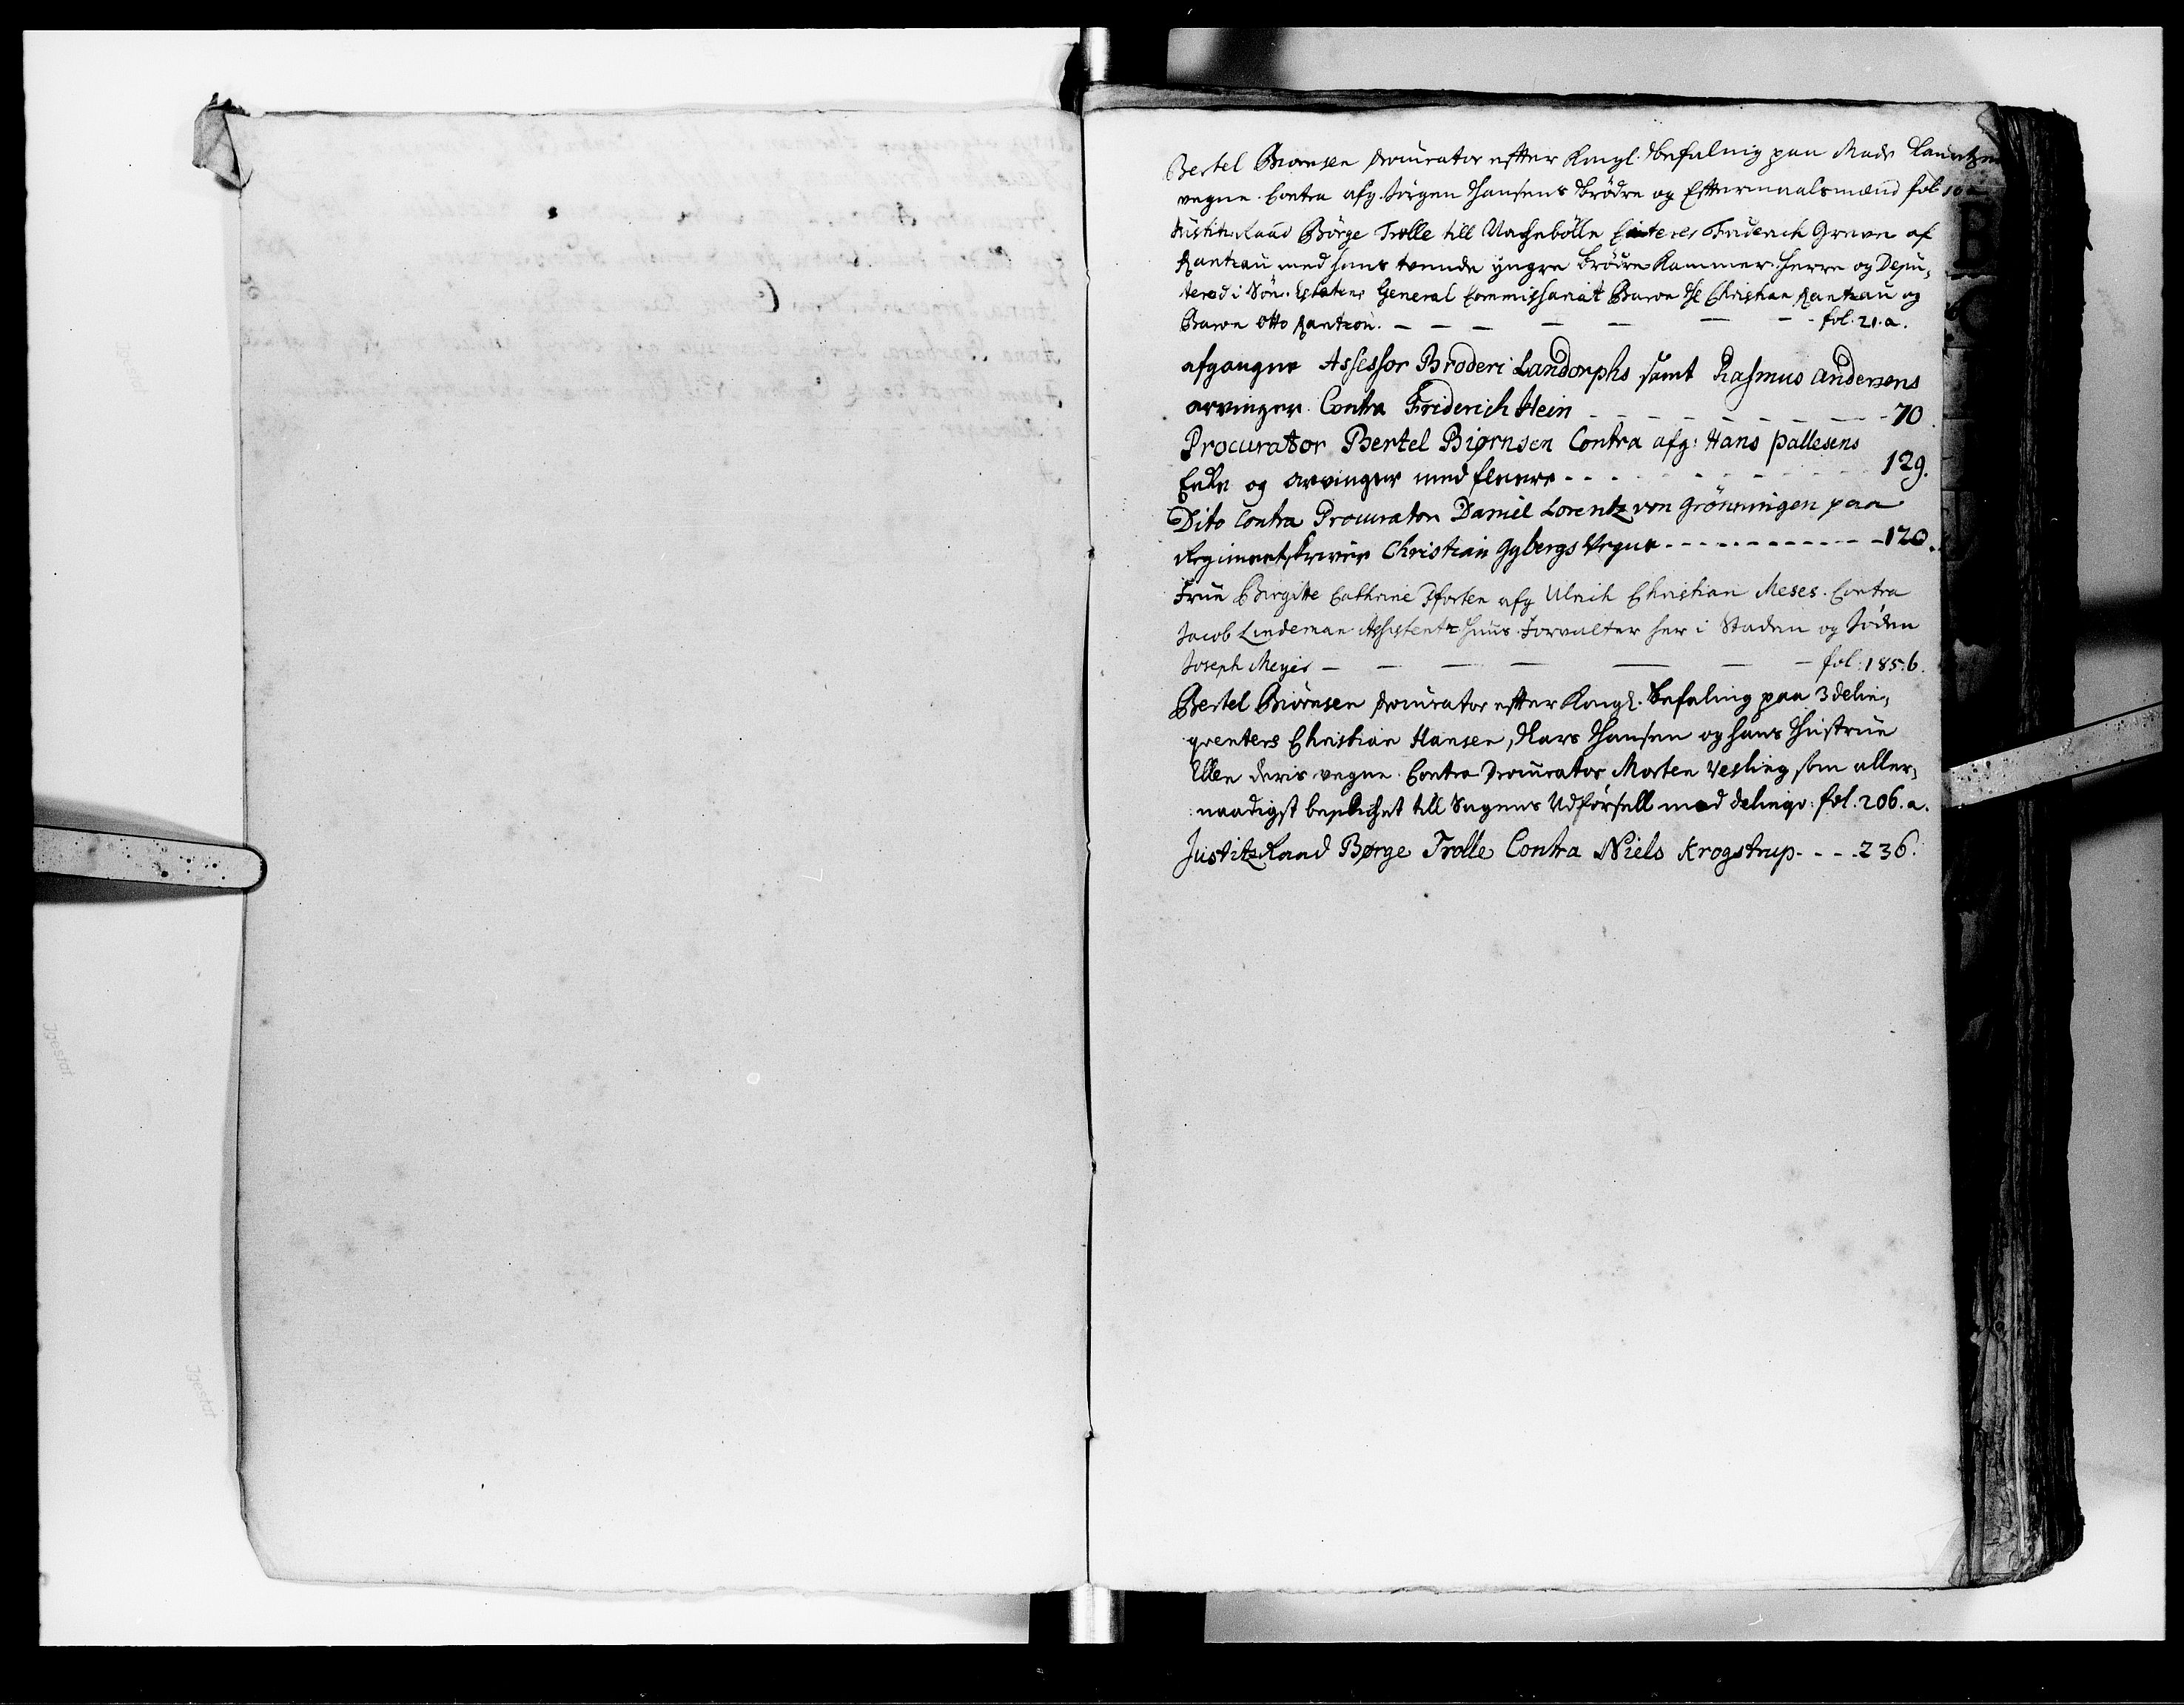 Bertel Biørnsen Procurator efter Kongl. Befaling paa Mads Lauritzens
vegne. Contra afg. Jørgen Hansens Brödre og Eftermaalsmænd fol 10 a
Justitz Raad Börge Trolle till Contra Friderich Greve af
Rantzau med hans tvende yngre Brödre Kammer-Herre og Depu-
tered i Söe-Estatens General Commissariat Baron Hr Christian Rantzau og
Baron Otto Rantzou. — — — — — — — fol. 21. a.
afgangne Assessor Broderi Landorphs samt Rasmus Andersens
arvinger. Contra Friderich Hein - - - - - - - 70.
Procurator Bertel Biørnsen Contra afg: Hans Pallesens
Enke og arvinger med fleere - - - - - - - 129.
Dito Contra Procurator Daniel Lorentz von Grönningen paa
Regimentskriver Christian Gybergs Vegne - - - - - - - 120.
Frue Birgitte Cathrine Pforten afg Ulrich Christian Meses. Contra
Jacob Lindeman Assistentz Huus-Forvalter her i Staden og Jöden
Joseph Meyer — — — — — — — fol: 185. b.
Bertel Biörnsen Procurator efter Kongl. Befaling paa 3 delin-
qventers Christian Hansen, Lars Hansen og hans Hustrue
Ellen deris vegne. Contra Procurator Morten Vesling som aller-
naadigst beplichtet till Sagens Udförsell mod delinqv: fol. 206. a.
Justitz Raad Børge Trolle Contra Niels Krogstrup - - - 236.